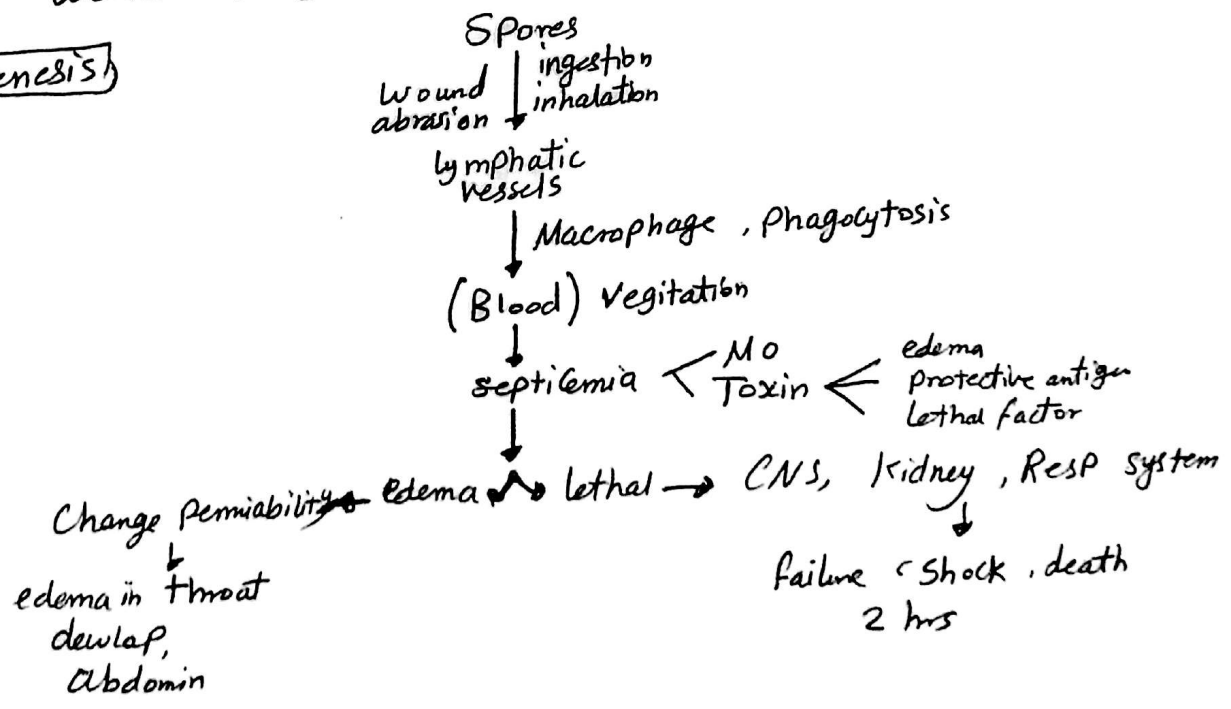 enesis
Spores
wound ingestion
abrasion inhalation
lymphatic
vessels
Macrophage, Phagocytosis
(Blood) vegitation
septicemia MO
Toxin
edema
protective antigen
Lethal factor
Change Permiability edema lethal CNS, Kidney, Resp system
edema in throat
dewlap,
abdomin
failure shock, death
2 hrs